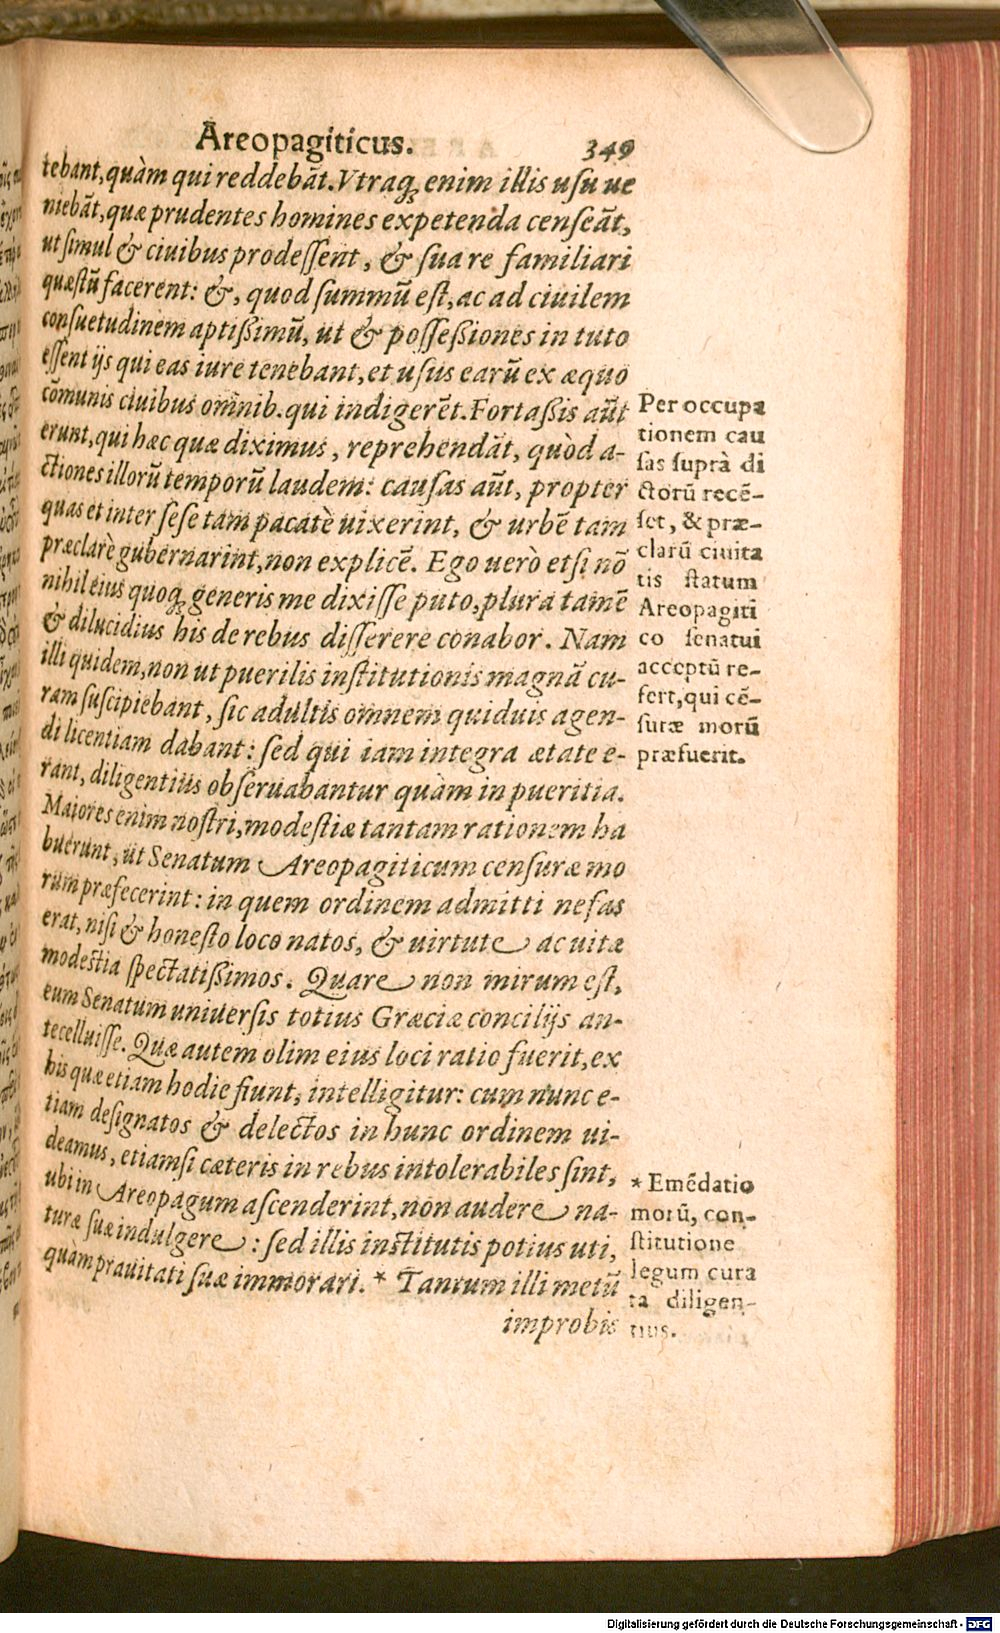 Areopagiticus. 349
tebant, quàm qui reddebāt. Vtraq; enim illis usu ue
niebāt, quæ prudentes homines expetenda censeāt,
ut simul & ciuibus prodessent, & sua re familiari
quæstū facerent: &, quod summū est, ac ad ciuilem
consuetudinem aptißimū, ut & possessiones in tuto
essent ijs qui eas iure tenebant, et usus earū ex æquo
cōmunis ciuibus omnib. qui indigerēt. Fortaßis aūt
erunt, qui hæc quæ diximus, reprehendāt, quòd a-
ctiones illorū temporū laudem: causas aūt, propter
quas et inter sese tam pacatè uixerint, & urbē tam
præclarè gubernarint, non explicē. Ego uerò etsi nō
nihil eius quoq; generis me dixisse puto, plura tamē
& dilucidius his de rebus disserere conabor. Nam
illi quidem, non ut puerilis institutionis magnā cu-
ram suscipiebant, sic adultis omnem quiduis agen-
di licentiam dabant: sed qui iam integra ætate e-
rant, diligentius obseruabantur quàm in pueritia.
Maiores enim nostri, modestiæ tantam rationem ha
buerunt, ut Senatum Areopagiticum censuræ mo
rum præfecerint: in quem ordinem admitti nefas
erat, nisi & honesto loco natos, & uirtute ac uitæ
modestia spectatißimos. Quare non mirum est,
eum Senatum uniuersis totius Græciæ concilijs an-
tecelluisse. Quæ autem olim eius loci ratio fuerit, ex
his quæ etiam hodie fiunt, intelligitur: cum nunc e-
tiam designatos & delectos in hunc ordinem ui-
deamus, etiamsi cæteris in rebus intolerabiles sint,
ubi in Areopagum ascenderint, non audere na-
turæ suæ indulgere: sed illis institutis potius uti,
quàm prauitati suæ immorari. * Tantum illi metū
improbis
Per occupa
tionem cau
sas suprà di
ctorū recē-
set, & præ-
clarū ciuita
tis statum
Areopagiti
co senatui
acceptū re-
fert, qui cē-
suræ morū
præfuerit.
* Emēdatio
morū, con-
stitutione
legum cura
ta diligen-
tius.
Digitalisierung gefördert durch die Deutsche Forschungsgemeinschaft - DFG